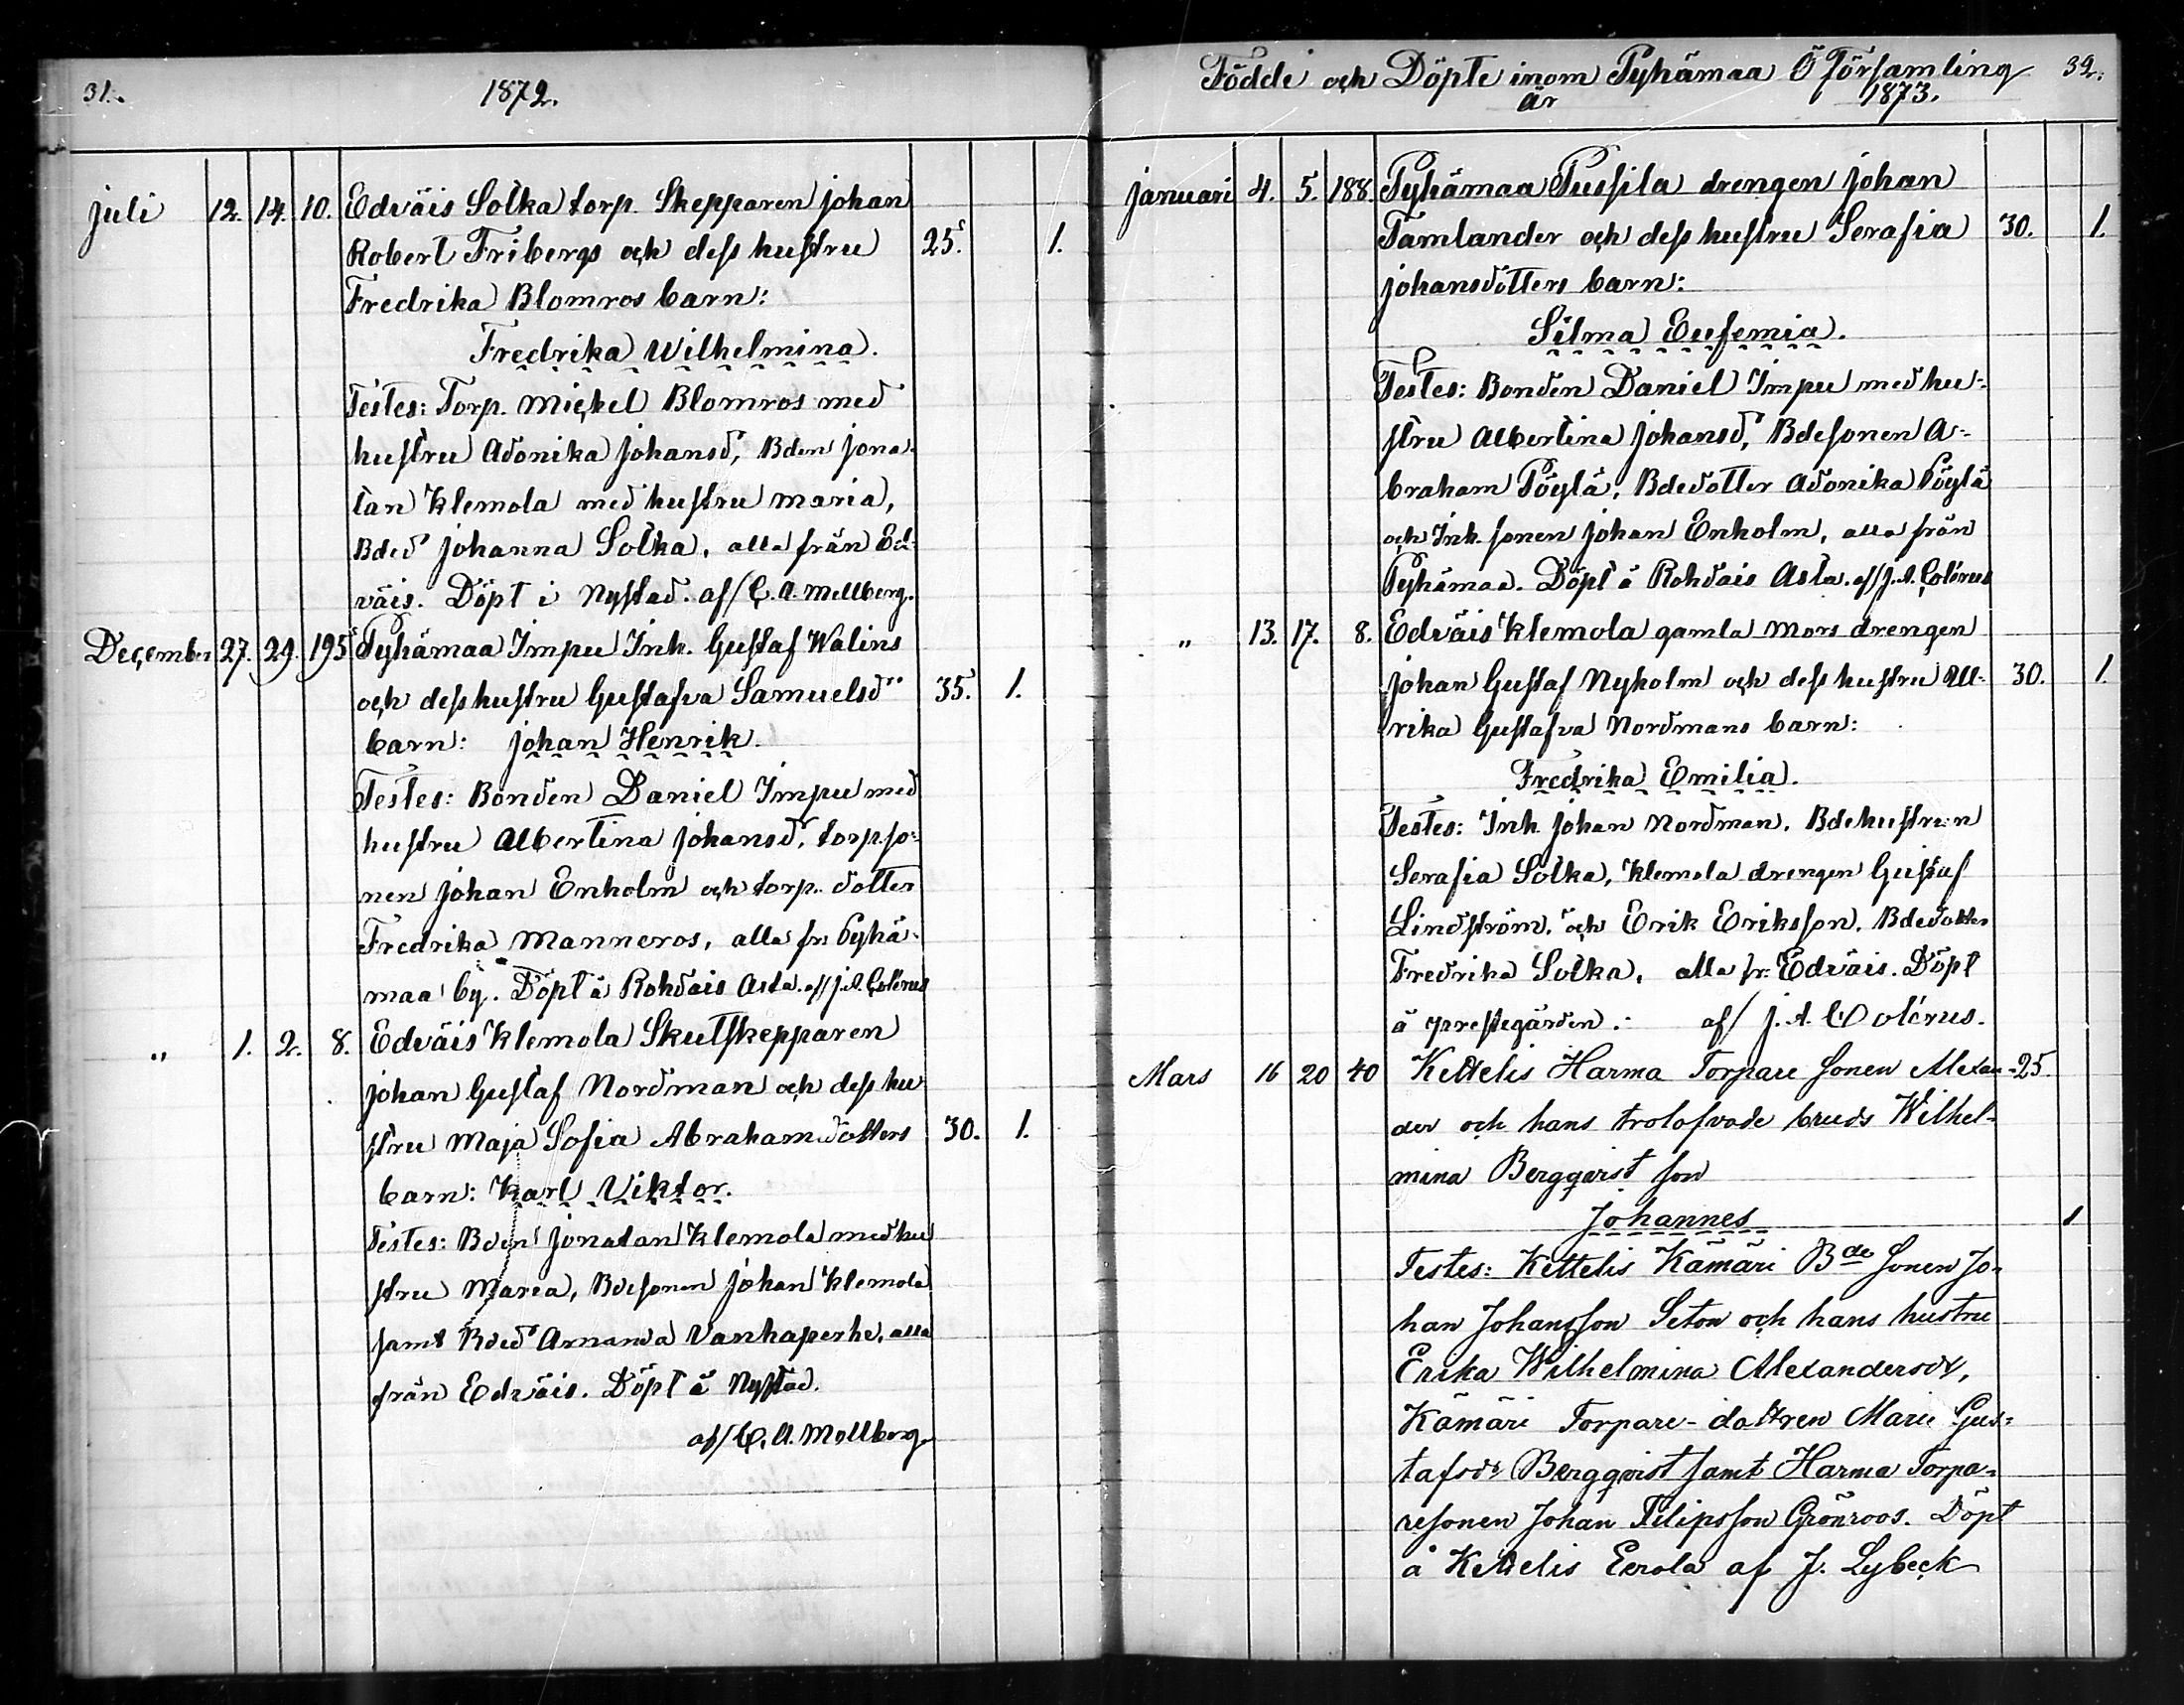 31.
1872.
Juli 12. 14. 10. Edväis Solka torp. Skepparen Johan
Robert Fribergs och dess hustru 25. 1.
Fredrika Blomros barn:
Fredrika Wilhelmina.
Testes: Torp. Mickel Blomros med
hustru Adonika Johansd, Bden Jona-
tan Klemola med hustru Maria,
Bded Johanna Solka, alla från Ed-
väis. Döpt i Nystad. af/ C. A. Mellberg.
December 27. 29. 195 Pyhämaa Impu Inh. Gustaf Walins
och dess hustru Gustafva Samuelsd" 35. 1.
barn: Johan Henrik.
Testes: Bonden Daniel Impu med
hustru Albertina Johansd, torp.so-
nen Johan Enholm och torp. dotter
Fredrika Manneros, alla fr. Pyhä-
maa by. Döpt å Rohdais Asta. af/ J. A. Colérus
" 1. 2. 8. Edväis Klemola Skutskepparen
Johan Gustaf Nordman och dess hu
stru Maja Sofia Abrahamsdotters 30. 1.
barn: Karl Viktor.
Testes: Bden Jonatan Klemola med hu
stru Maria, Bdesonen Johan Klemola
samt Bded Amanda Vanhaperhe, alla
från Edväis. Döpt å Nystad.
af/ C. A. Mellberg.
Födde och Döpte inom Pyhämaa Ö Församling 32.
år 1873.
Januari 4. 5. 188. Pyhämaa Pussila drengen Johan
Tamlander och dess hustru Serafia 30. 1.
Johansdotters barn:
Silma Eufemia.
Testes: Bonden Daniel Impu med hu-
stru Albertina Johansd, Bdesonen A-
braham Pöylä, Bdedotter Adonika Pöylä
och Inh. sonen Johan Enholm, alla från
Pyhämaa. Döpt å Rohdais Asta. af/ J. A. Colérus
" 13. 17. 8. Edväis Klemola gamla Mors drengen
Johan Gustaf Nyholm och dess hustru Ul- 30. 1.
rika Gustafva Nordmans barn:
Fredrika Emilia.
Testes: Inh Johan Nordman, Bdehustrun
Serafia Solka, Klemola drengen Gustaf
Lindström, och Erik Eriksson, Bdedotter
Fredrika Solka, alla fr. Edväis. Döpt
å prestegården. af/ J. A. Colérus.
Mars 16 20 40 Kettelis Harma Torpare sonen Alexan- 25
der och hans trolofvade bruds Wilhel-
mina Bergqvist son
Johannes 1
Testes: Kettelis Kämäri Bde sonen Jo-
han Johansson Seton och hans hustru
Erika Wilhelmina Alexandersdr,
Kämäri Torpare-dottren Marie Gus-
tafsdr Bergqvist samt Harma Torpa-
resonen Johan Filipsson Grönroos. Döpt
å Kettelis Eerola af J. Lybeck